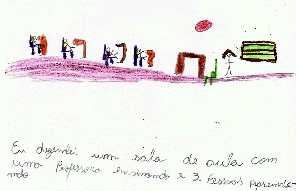 Eu dezenhei um sala de aula com
uma Professora ensinando e 3 Pessoas parendeni
ndo